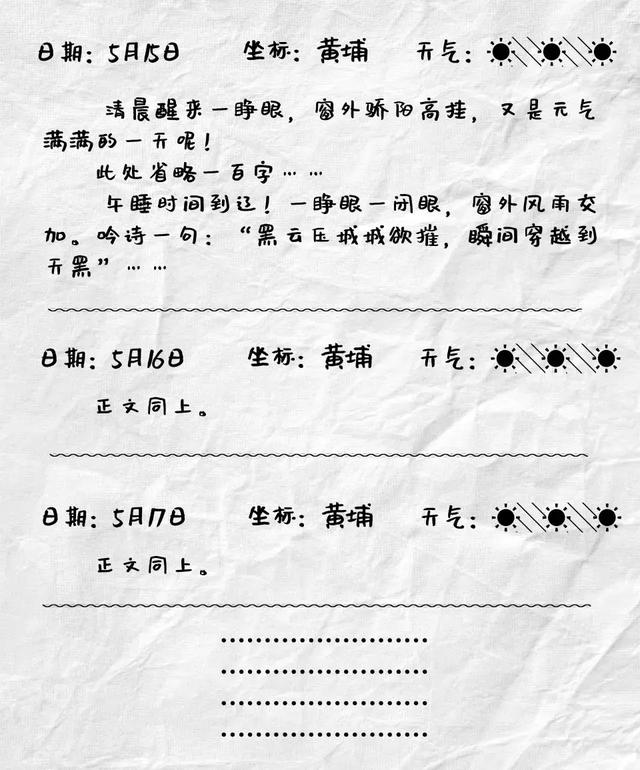 日期：5月15日 坐标：黄埔 天气：
清晨醒来一睁眼，窗外骄阳高挂，又是元气
满满的一天呢！
此处省略一百字……
午睡时间到辽！一睁眼一闭眼，窗外风雨交
加。吟诗一句：“黑云压城城欲摧，瞬间穿越到
天黑”……
日期：5月16日 坐标：黄埔 天气：
正文同上。
日期：5月17日 坐标：黄埔 天气：
正文同上。